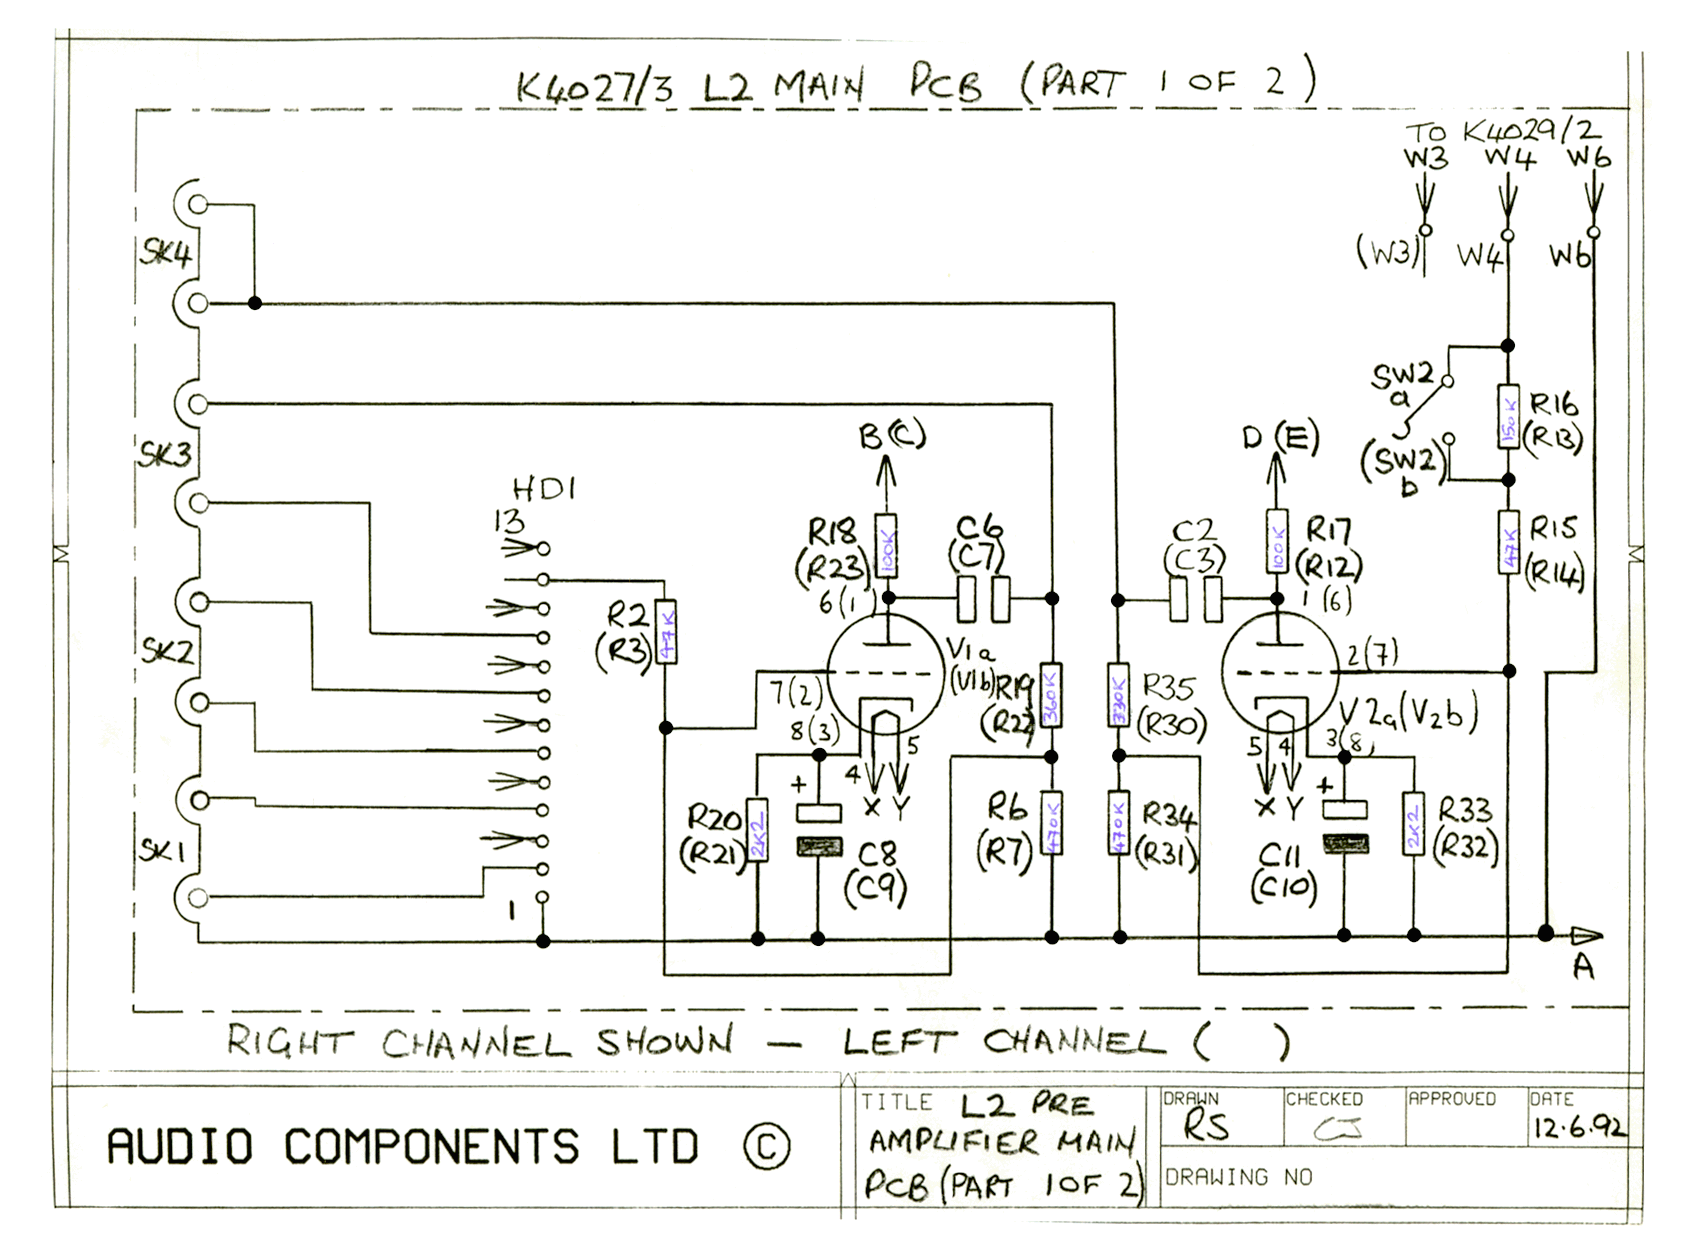 K4027/3 L2 MAIN PCB (PART 1 OF 2)
TO K4029/2
W3 W4 W6
(W3) W4 W6
SK4
SK3
SK2
SK1
HD1
13
1
R2
(R3)
47K
B(C)
R18
(R23)
100K
6(1)
C6
(C7)
V1a
(V1b)
7(2)
8(3)
4
5
X Y
R20
(R21)
2K2
+
C8
(C9)
R19
(R22)
360K
R6
(R7)
470K
D(E)
C2
(C3)
R17
(R12)
100K
1(6)
2(7)
R35
(R30)
330K
V2a(V2b)
5 4
3(8)
X Y
R34
(R31)
470K
+
C11
(C10)
R33
(R32)
2K2
SW2
a
(SW2)
b
R16
(R13)
150K
R15
(R14)
47K
A
RIGHT CHANNEL SHOWN – LEFT CHANNEL ( )
AUDIO COMPONENTS LTD ©
TITLE L2 PRE
AMPLIFIER MAIN
PCB (PART 1 OF 2)
DRAWN
RS
CHECKED
CJ
APPROVED
DATE
12.6.92
DRAWING NO
M
M